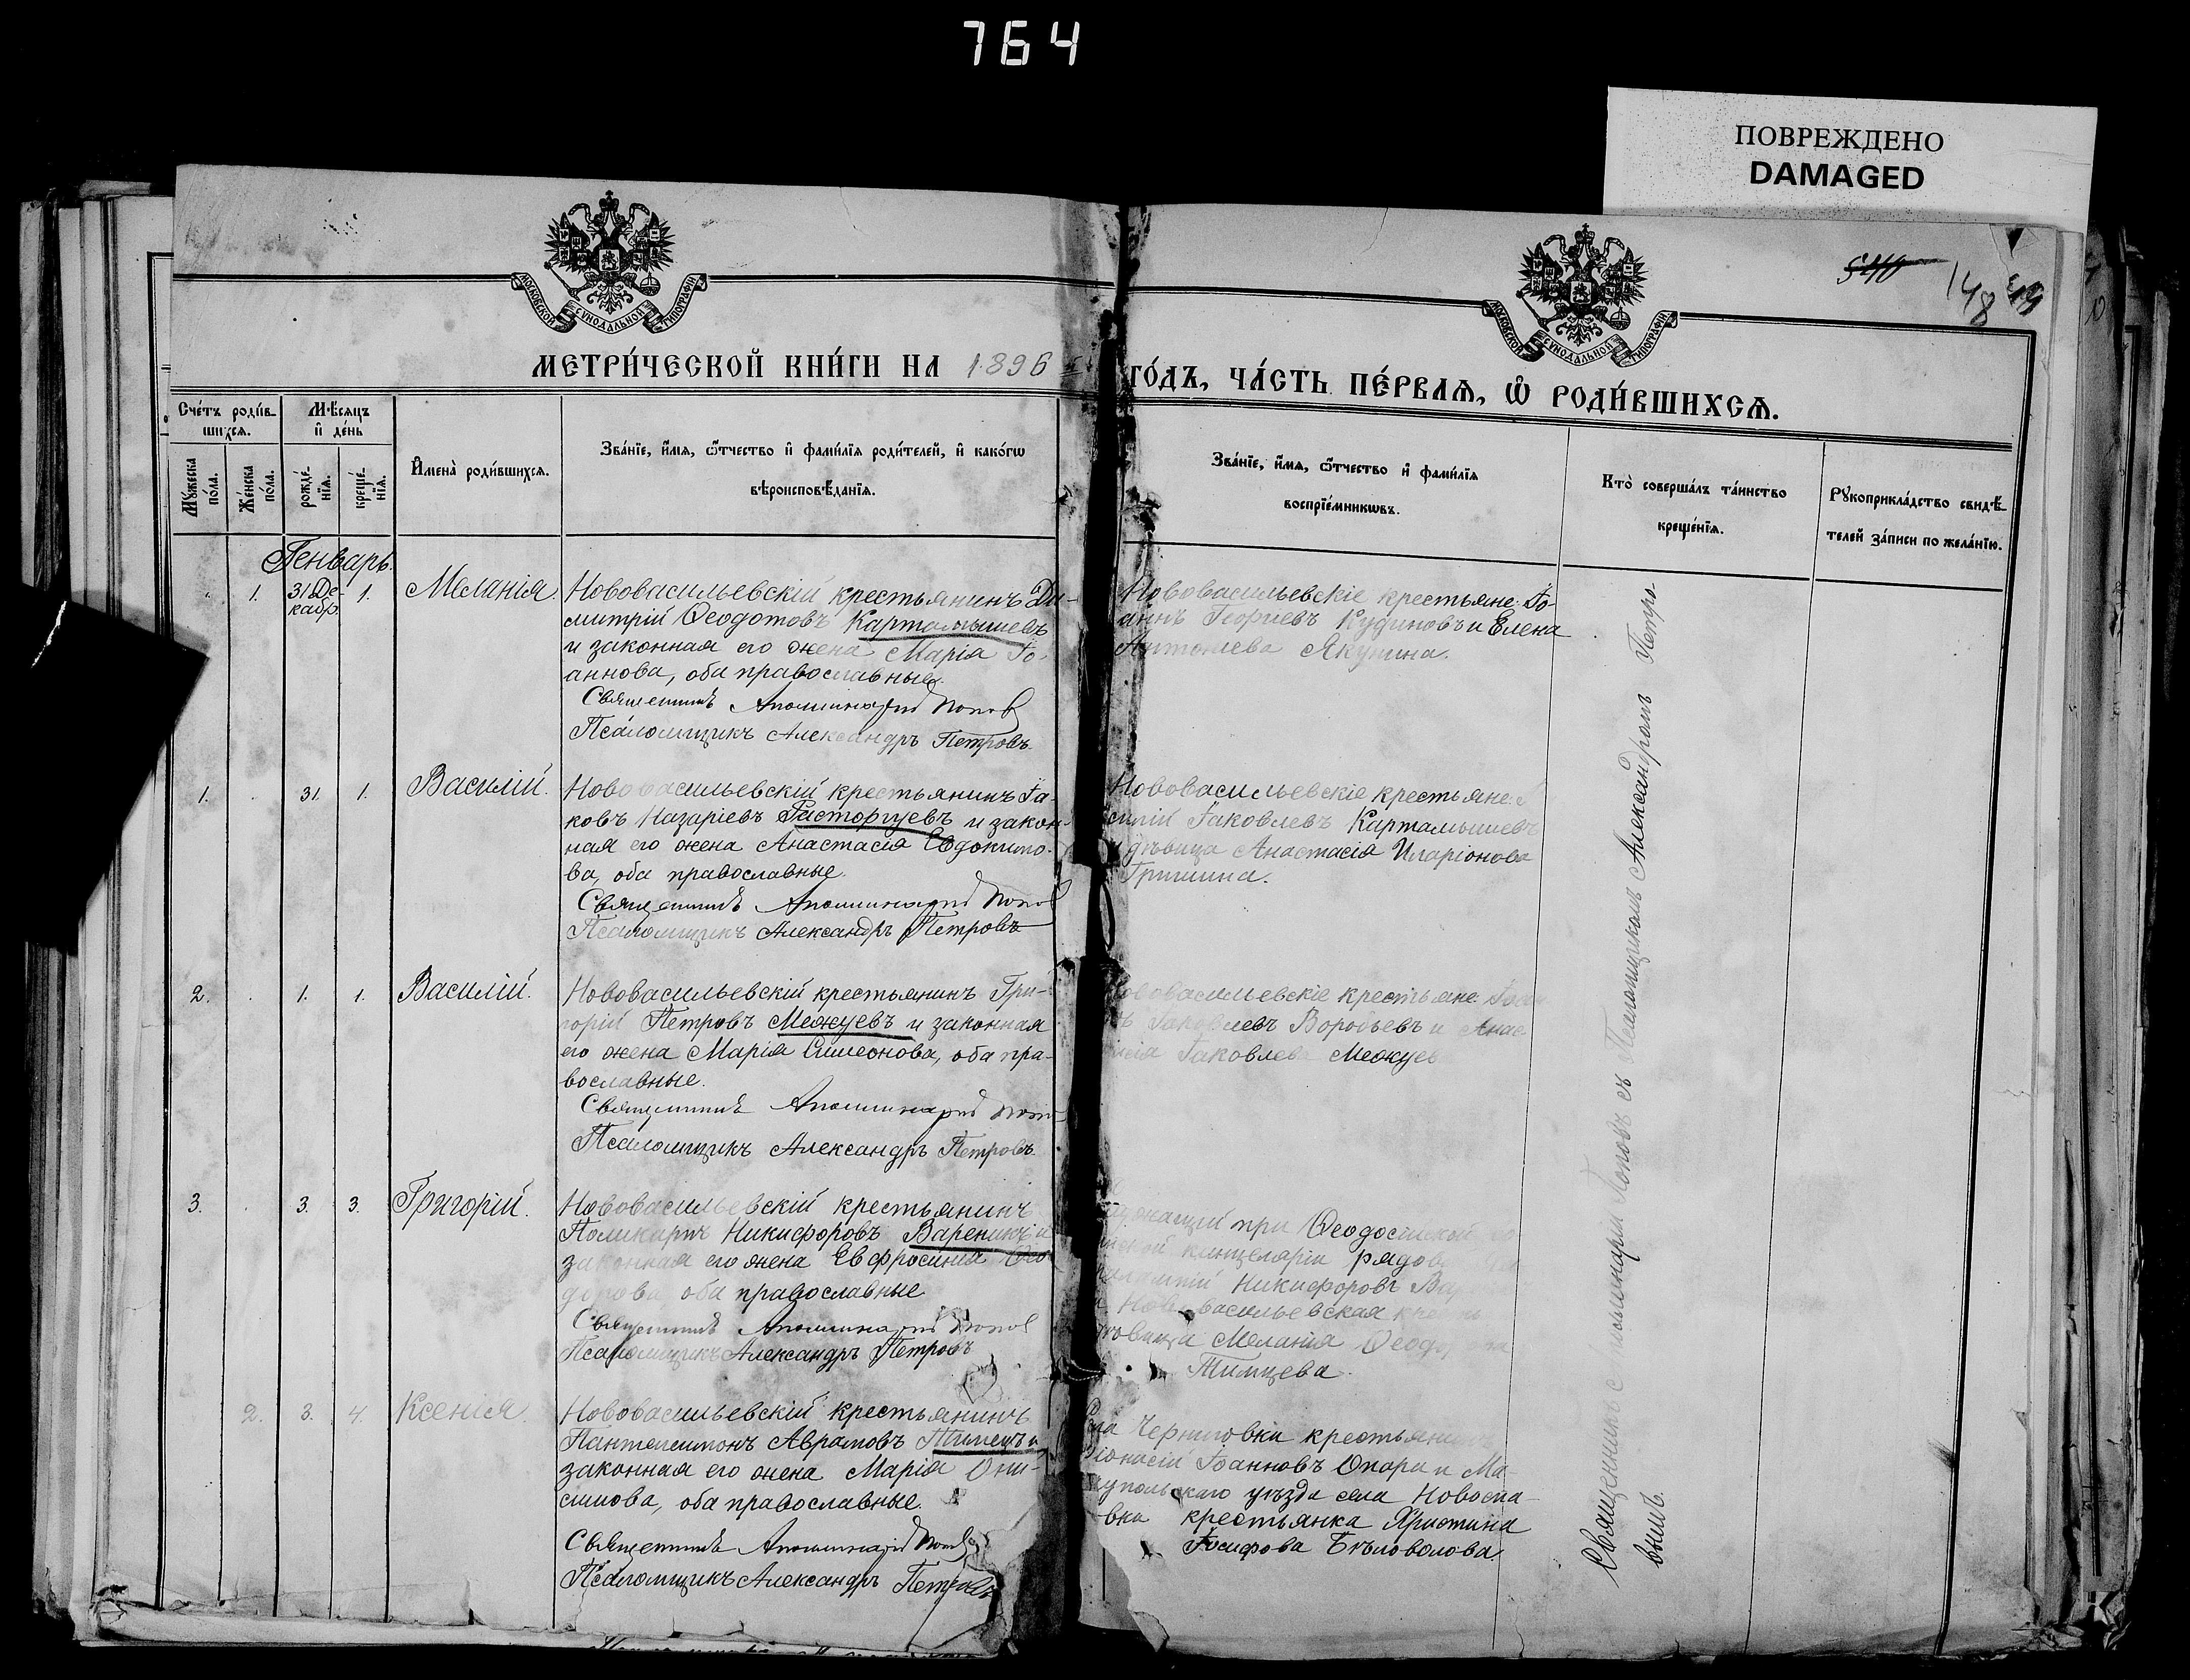 764
ПОВРЕЖДЕНО
DAMAGED
МОСКОВСКОЙ СѴНОДАЛЬНОЙ ТИПОГРАФІИ
МОСКОВСКОЙ СѴНОДАЛЬНОЙ ТИПОГРАФІИ
540 148
МЕТРИ́ЧЕСКОЙ КНИ́ГИ НА 1896
ГО́ДЪ, ЧА́СТЬ ПЕ́РВАѦ, Ѿ РОДИ́ВШИХСѦ.
Сче́тъ роди́в-
шихсѧ.
Мꙋ́жеска по́ла.
Же́нска по́ла.
Мѣ́сѧцъ
и҆ де́нь
рожде́-
нїѧ.
креще́-
нїѧ.
И҆мена̀ роди́вшихсѧ.
Зва́нїе, и҆́мѧ, ѻ҆́тчество и҆ фами́лїѧ роди́телей, и҆ како́гѡ
вѣроисповѣ́данїѧ.
Зва́нїе, и҆́мѧ, ѻ҆́тчество и҆ фами́лїѧ
воспрїе́мникѡвъ.
Кто̀ соверша́лъ та́инство
креще́нїѧ.
Рꙋкоприкла́дство свидѣ́-
телей за́писи по жела́нїю.
Генварь.
1. 31 Де-
кабр. 1. Меланія.
Нововасильевскій крестьянинъ Ди-
митрій Ѳеодотовъ Картамышевъ
и законная его жена Марія Іо-
аннова, оба православные.
Священникъ Аполлинарій Попов
Псаломщикъ Александръ Петровъ.
Нововасильевскіе крестьяне: Іо-
аннъ Георгіевъ Кудиновъ и Елена
Антоніева Якунина.
1. 31. 1. Василій.
Нововасильевскій крестьянинъ Іа-
ковъ Назаріевъ Расторгуевъ и закон-
ная его жена Анастасія Евдокимо-
ва, оба православные.
Священникъ Аполлинарій Попов
Псаломщикъ Александръ Петровъ
Нововасильевскіе крестьяне:
силій Іаковлевъ Картамышевъ
и дѣвица Анастасія Иларіонова
Гришина.
2. 1. 1. Василій.
Нововасильевскій крестьянинъ Гри-
горій Петровъ Межуевъ и законная
его жена Марія Симеонова, оба пра-
вославные.
Священникъ Аполлинарій Попов
Псаломщикъ Александръ Петровъ.
Нововасильевскіе крестьяне:
Іаковлевъ Воробьевъ и Анас-
тасія Іаковлева Межуев
3. 3. 3. Григорій.
Нововасильевскій крестьянинъ
Поликарпъ Никифоровъ Вареникъ и
законная его жена Евфросинія Ѳео-
дорова, оба православные
Священникъ Аполлинарій Попов
Псаломщикъ Александръ Петровъ
при Ѳеодосійской
канцеляріи рядов
Никифоровъ Вар
и Нововасильевская
дѣвица Меланія Ѳеодорова
Тимцева.
2. 3. 4. Ксенія.
Нововасильевскій крестьянинъ
Пантелеимонъ Аврамовъ Тимецъ и
законная его жена Марія Они-
симова, оба православные.
Священникъ Аполлинарій Попов
Псаломщикъ Александръ Петровъ
Черниговки крестьянинъ
Діонисій Іоанновъ Опара и Ма-
ріупольскаго уѣзда села Новоспа-
вки крестьянка Христина
Іосифова Бѣловолова.
Священникъ Аполлинарій Поповъ съ Псаломщикомъ Александромъ Петро-
вымъ.